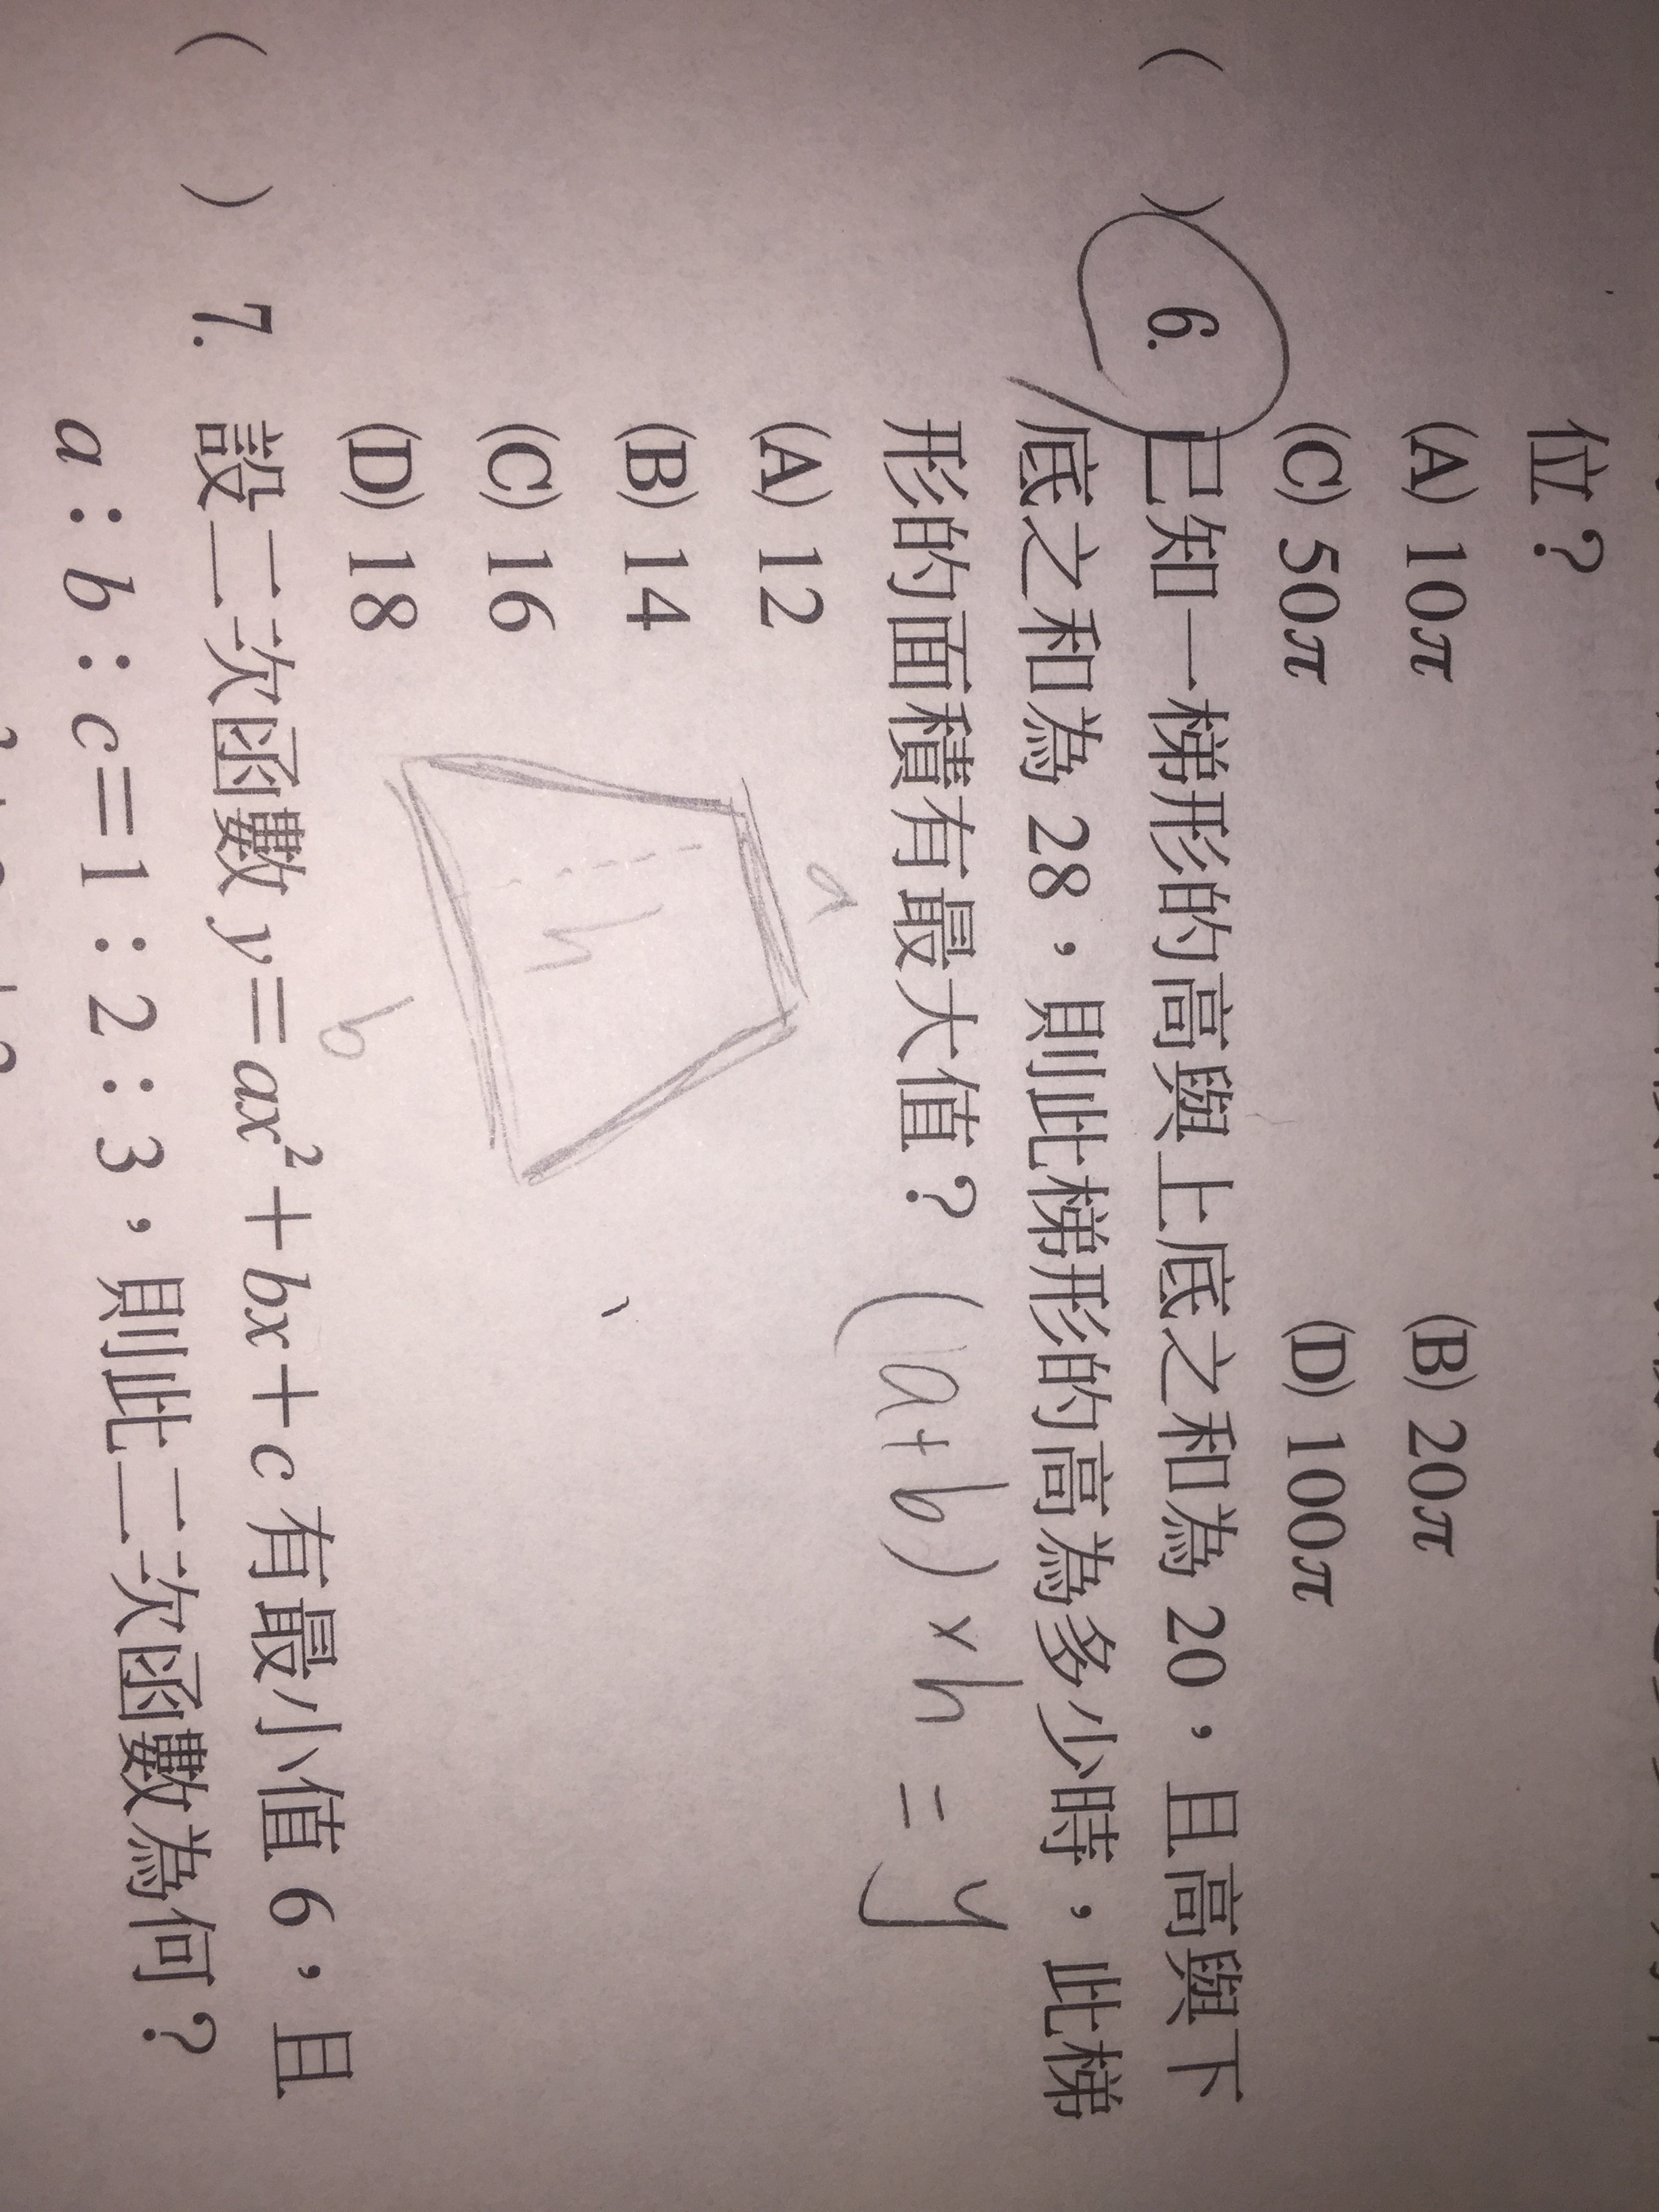 位？
(A) 10π (B) 20π
(C) 50π (D) 100π
( ) 6. 已知一梯形的高與上底之和為 20，且高與下
底之和為 28，則此梯形的高為多少時，此梯
形的面積有最大值？ (a+b)×h=y
(A) 12
(B) 14
(C) 16
(D) 18
a
h
b
( ) 7. 設二次函數 y=ax²+bx+c 有最小值 6，且
a：b：c=1：2：3，則此二次函數為何？